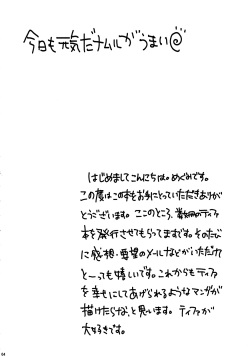 今日も元気だナムルがうまい@
はじめましてこんにちは。めぐみです。
この度はこの本をお手にとっていただきありが
とうございます。ここのところ、
本を発行させてもらってますです。そのたび
に感想・要望のメールなどがいただけて
と〜っても嬉しいです。これからもティファ
を幸せにしてあげられるようなマンガが
描けたらな、と思います。ティファが
大好きです。
04